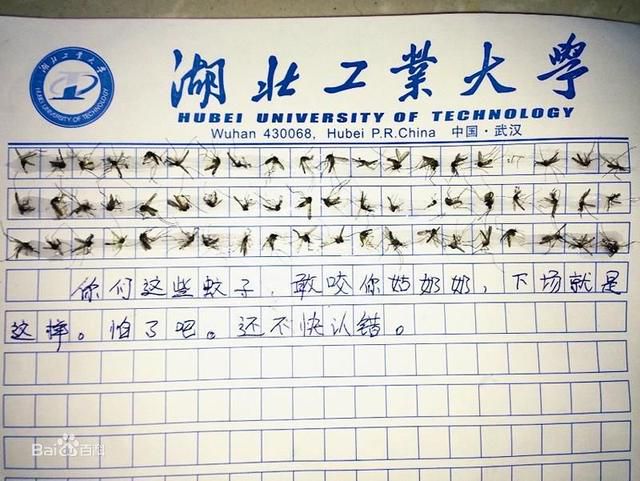 湖北工業大學
HUBEI UNIVERSITY OF TECHNOLOGY
湖北工業大學
HUBEI UNIVERSITY OF TECHNOLOGY
Wuhan 430068, Hubei P.R.China 中国·武汉
你们这些蚊子，敢咬你姑奶奶，下场就是
这样。怕了吧。还不快认错。
Bai百科